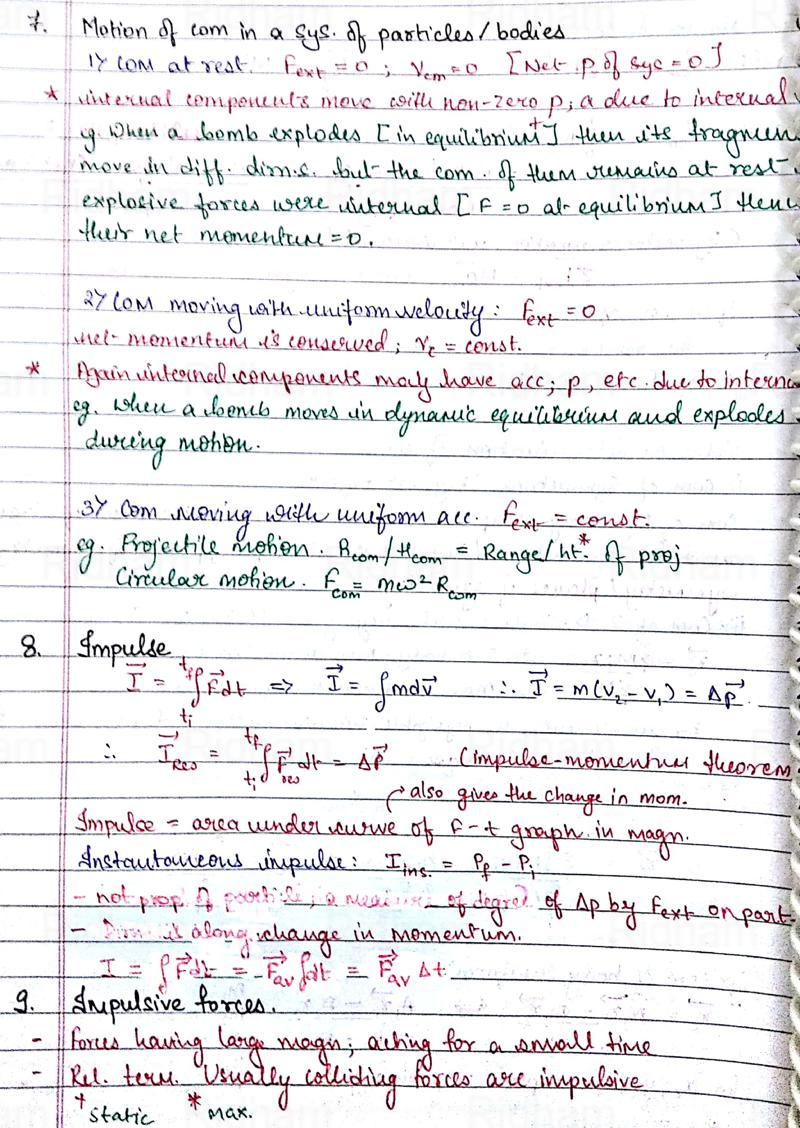 7. Motion of com in a sys. of particles/bodies
1) COM at rest. Fext = 0 ; Vcm = 0 [Net p of sys = 0]
* internal components move with non-zero p; a due to internal
eg. When a bomb explodes [in equilibrium+] then its fragmen
move in diff. dirn.s. but the com. of them remains at rest.
explosive forces were internal [F = 0 at equilibrium] Hen
their net momentum = 0.
2) COM moving with uniform velocity : Fext = 0
net momentum is conserved ; Vc = const.
* Again internal components may have acc; p, etc. due to interna
eg. When a bomb moves in dynamic equilibrium and explodes
during motion.
3) Com moving with uniform acc. Fext = const.
eg. Projectile motion. Rcom/Hcom = Range/ht.* of proj
Circular motion. Fcom = mω²Rcom
8. Impulse
I⃗ = ∫ti^tf F⃗dt ⇒ I⃗ = ∫mdv⃗ ∴ I⃗ = m(v₂ - v₁) = Δp⃗.
∴ I⃗Res = ∫ti^tf F⃗res dt = ΔP⃗ (impulse-momentum theorem
also gives the change in mom.
Impulse = area under curve of F-t graph in magn.
Instantaneous impulse : Iins. = Pf - Pi
- not prop. of particle, a measure of degree of Δp by Fext on part.
- Dirn is along change in momentum.
I = ∫F⃗dt = F⃗av ∫dt = F⃗av Δt
9. Impulsive forces.
- Forces having large magn; acting for a small time
- Rel. term. Usually colliding forces are impulsive
+ static * max.
Ridham